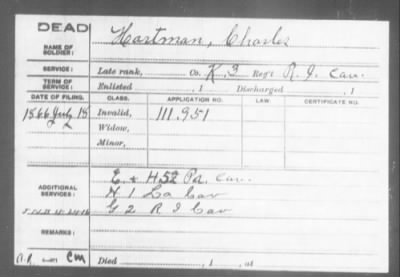 DEAD
NAME OF SOLDIER: Hartman, Charles
SERVICE: Late rank, Co. K, 3 Reg't R. I. Cav.
TERM OF SERVICE: Enlisted , 1 Discharged , 1
DATE OF FILING. CLASS. APPLICATION NO. LAW. CERTIFICATE NO.
1866 July 18 Invalid, 111.951
Widow,
Minor,
E. & H 52 Pa. Cav.
ADDITIONAL SERVICES: H 1 La Cav
G 2 R I Cav
REMARKS:
cm Died , 1 , at